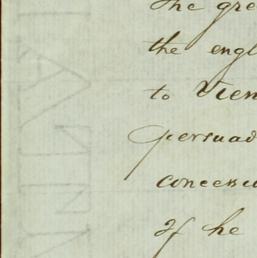 the gre
the engl
to Vien
persuad
concess
If he